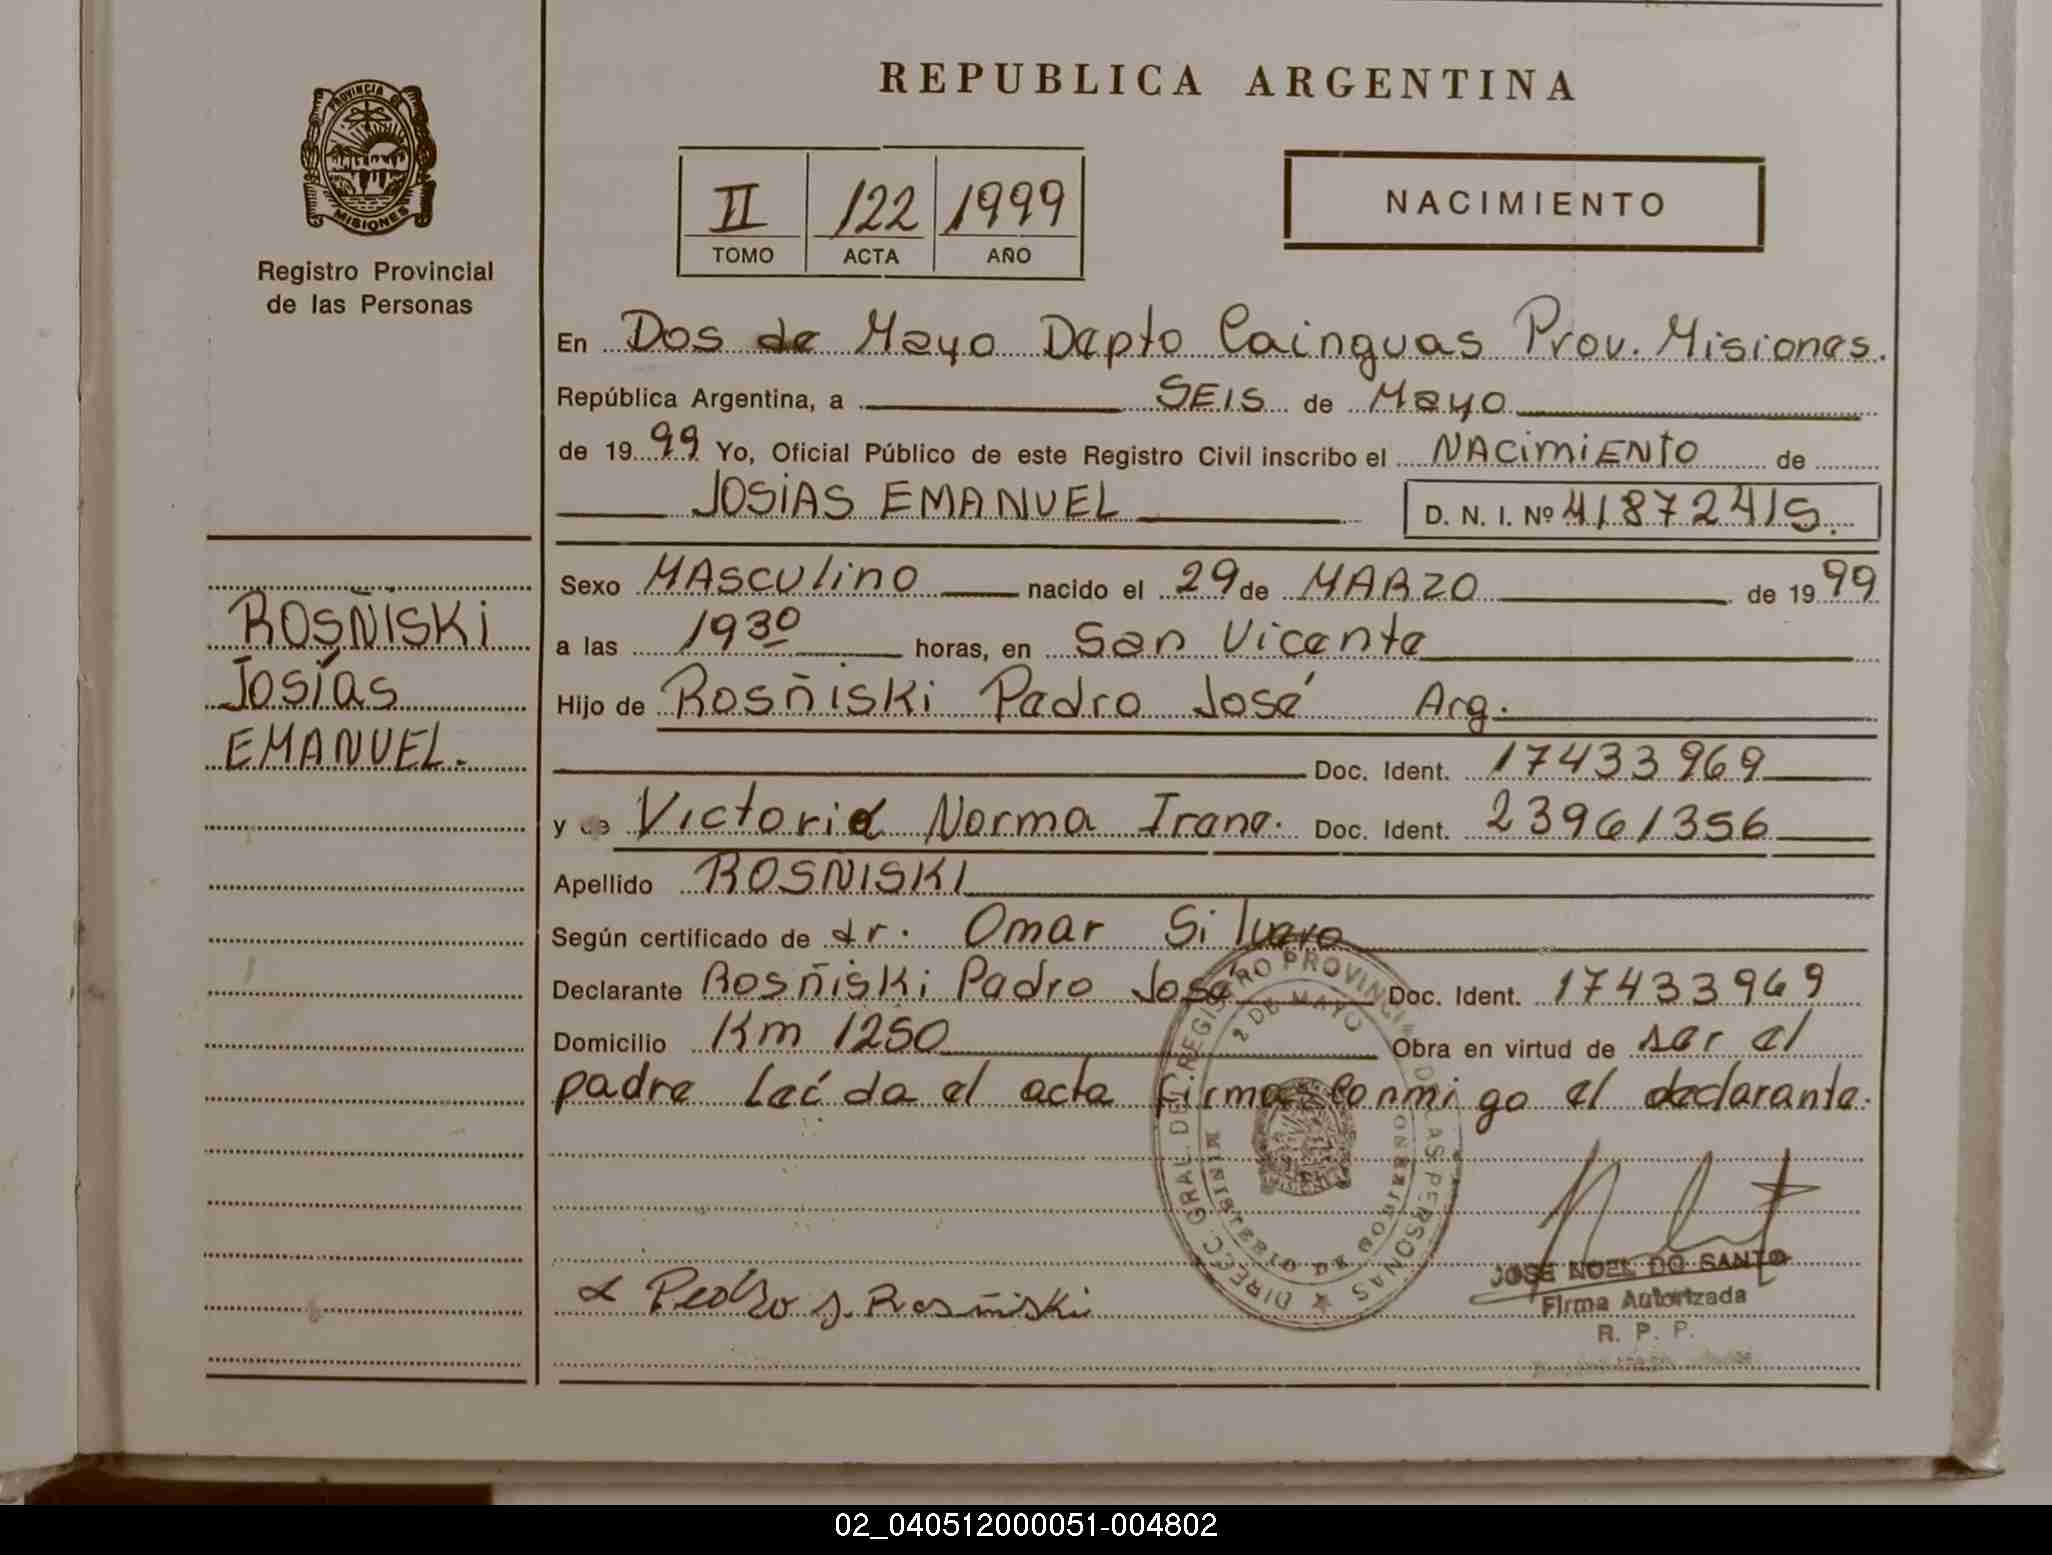 REPUBLICA ARGENTINA
PROVINCIA DE
MISIONES
Registro Provincial
de las Personas
II 122 1999
TOMO ACTA AÑO
NACIMIENTO
En Dos de Mayo Depto Cainguas Prov. Misiones.
República Argentina, a SEIS de Mayo
de 1999 Yo, Oficial Público de este Registro Civil inscribo el NACIMIENTO de
JOSIAS EMANUEL D. N. I. Nº 41872415.
Sexo MASCULINO nacido el 29 de MARZO de 1999
a las 1930 horas, en San Vicente
Hijo de Rosñiski Pedro José Arg.
Doc. Ident. 17433969
y de Victoria Norma Irene. Doc. Ident. 23961356
Apellido ROSÑISKI
Según certificado de dr. Omar Silvero
Declarante Rosñiski Pedro José Doc. Ident. 17433969
Domicilio Km 1250 Obra en virtud de ser el
padre Leída el acta firma Conmigo el declarante.
ROSÑISKI
Josías
EMANUEL.
DIREC. GRAL. DEL REGISTRO PROVINCIAL DE LAS PERSONAS
2 DE MAYO
MINISTERIO DE GOBIERNO
Pedro J. Rosñiski
JOSE NOEL DO SANTO
Firma Autorizada
R. P. P.
02_040512000051-004802